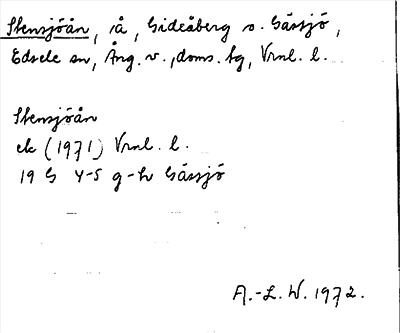 Stensjöån, å, Gideåberg o. Gåssjö,
Edsele sn, Ång. v., doms. tg, Vrnl. l.
Stensjöån
ek (1971) Vrnl. l.
19 G 4-5 g-h Gåssjö
A.-L. W. 1972.